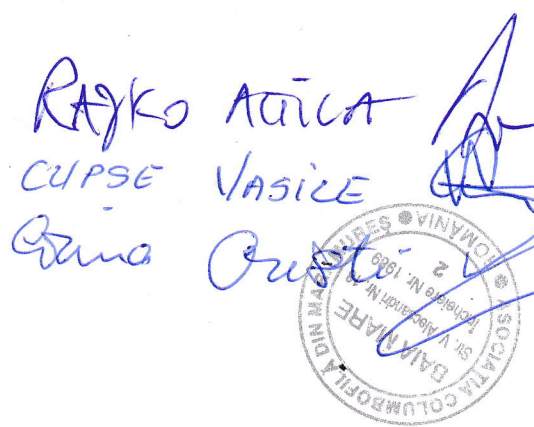 RAJKO ATTILA
CUPSE VASILE
Cristi
ASOCIAȚIA COLUMBOFILĂ DIN MARAMUREȘ
ROMÂNIA
BAIA MARE
Str. V. Alecsandri Nr.
Încheiere Nr. 1989
2